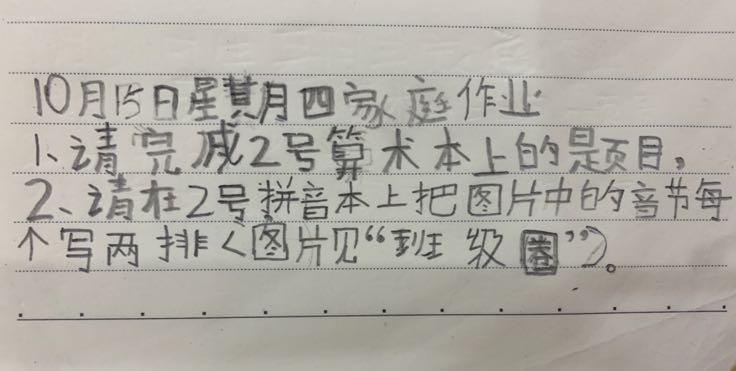 10月15日星期四家庭作业
1、请完成2号算术本上的题目。
2、请在2号拼音本上把图片中的音节每
个写两排(图片见“班级圈”)。